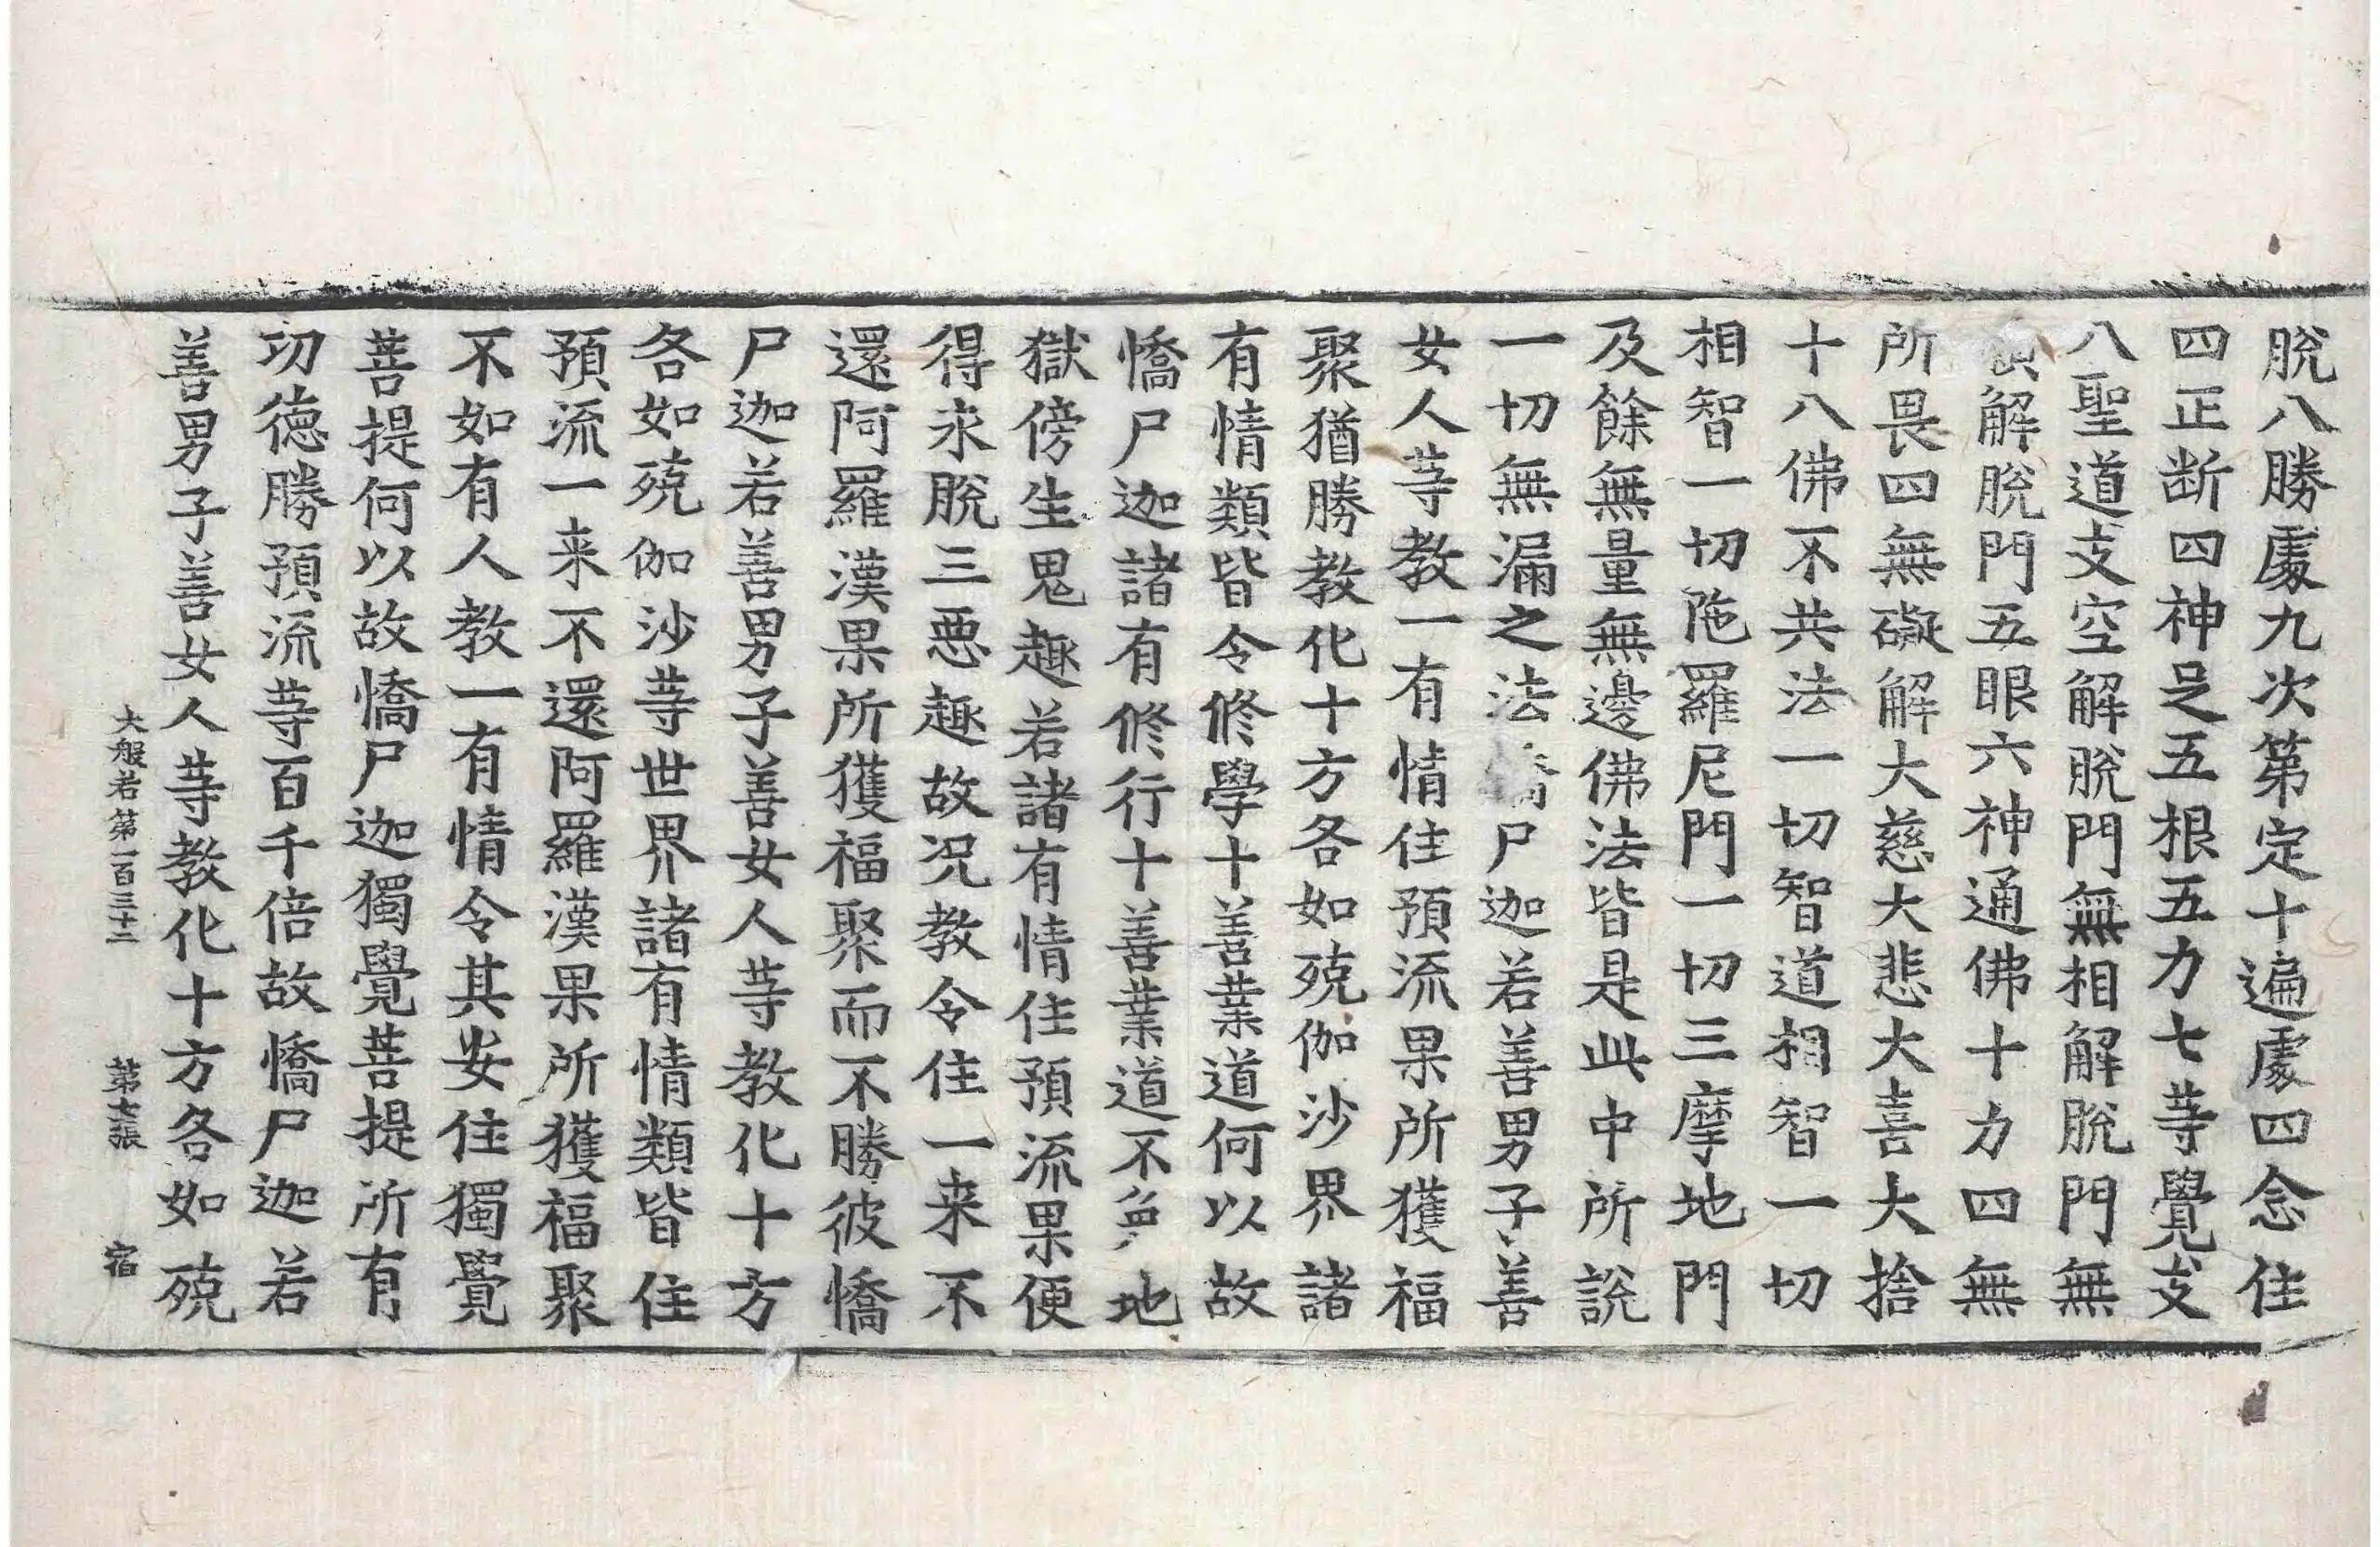 脫八勝處九次第定十遍處四念住
四正断四神足五根五力七等覺支
八聖道支空解脫門無相解脫門無
解脫門五眼六神通佛十力四無
所畏四無礙解大慈大悲大喜大捨
十八佛不共法一切智道相智一切
相智一切陁羅尼門一切三摩地門
及餘無量無邊佛法皆是此中所說
一切無漏之法憍尸迦若善男子善
女人等教一有情住預流果所獲福
聚猶勝教化十方各如殑伽沙界諸
有情類皆令修學十善業道何以故
憍尸迦諸有修行十善業道不免地
獄傍生鬼趣若諸有情住預流果便
得永脫三惡趣故况教令住一来不
還阿羅漢果所獲福聚而不勝彼憍
尸迦若善男子善女人等教化十方
各如殑伽沙等世界諸有情類皆住
預流一来不還阿羅漢果所獲福聚
不如有人教一有情令其安住獨覺
菩提何以故憍尸迦獨覺菩提所有
功德勝預流等百千倍故憍尸迦若
善男子善女人等教化十方各如殑
大般若第一百三十二 第七張 宿